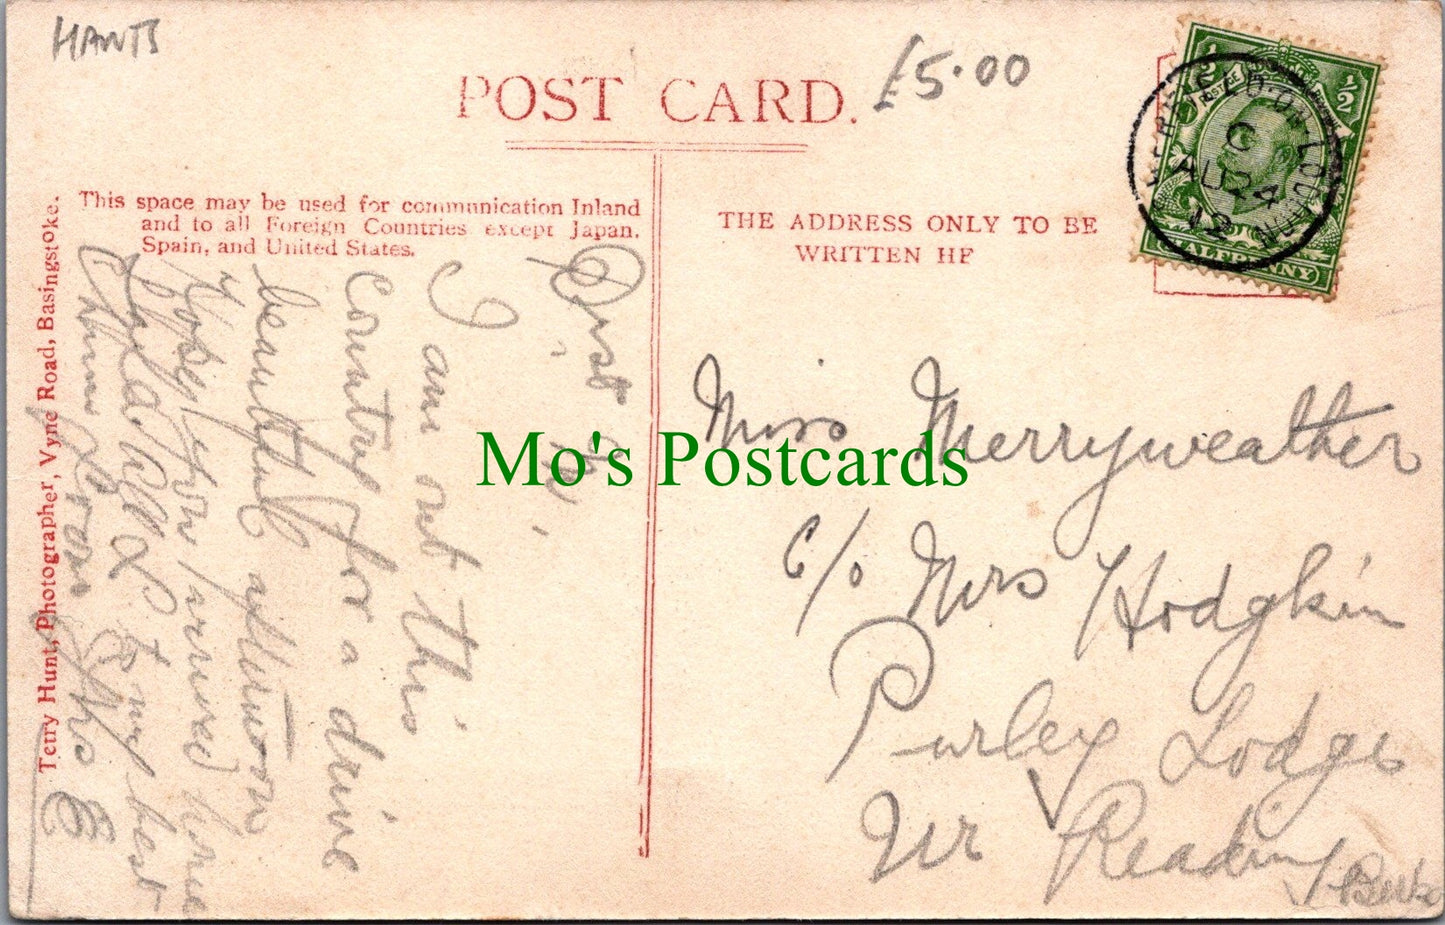 HANTS
POST CARD.
£5.00
This space may be used for communication Inland
and to all Foreign Countries except Japan,
Spain, and United States.
THE ADDRESS ONLY TO BE
WRITTEN HE
½ ½
POSTAGE
HALFPENNY
C
AU 24
12
Terry Hunt, Photographer, Vyne Road, Basingstoke.
I am out this
country for a drive
beautiful afternoon
Hope you arrived home
to my best
Miss Merryweather
c/o Mrs Hodgkin
Purley Lodge
Nr Reading
Berks
Mo's Postcards